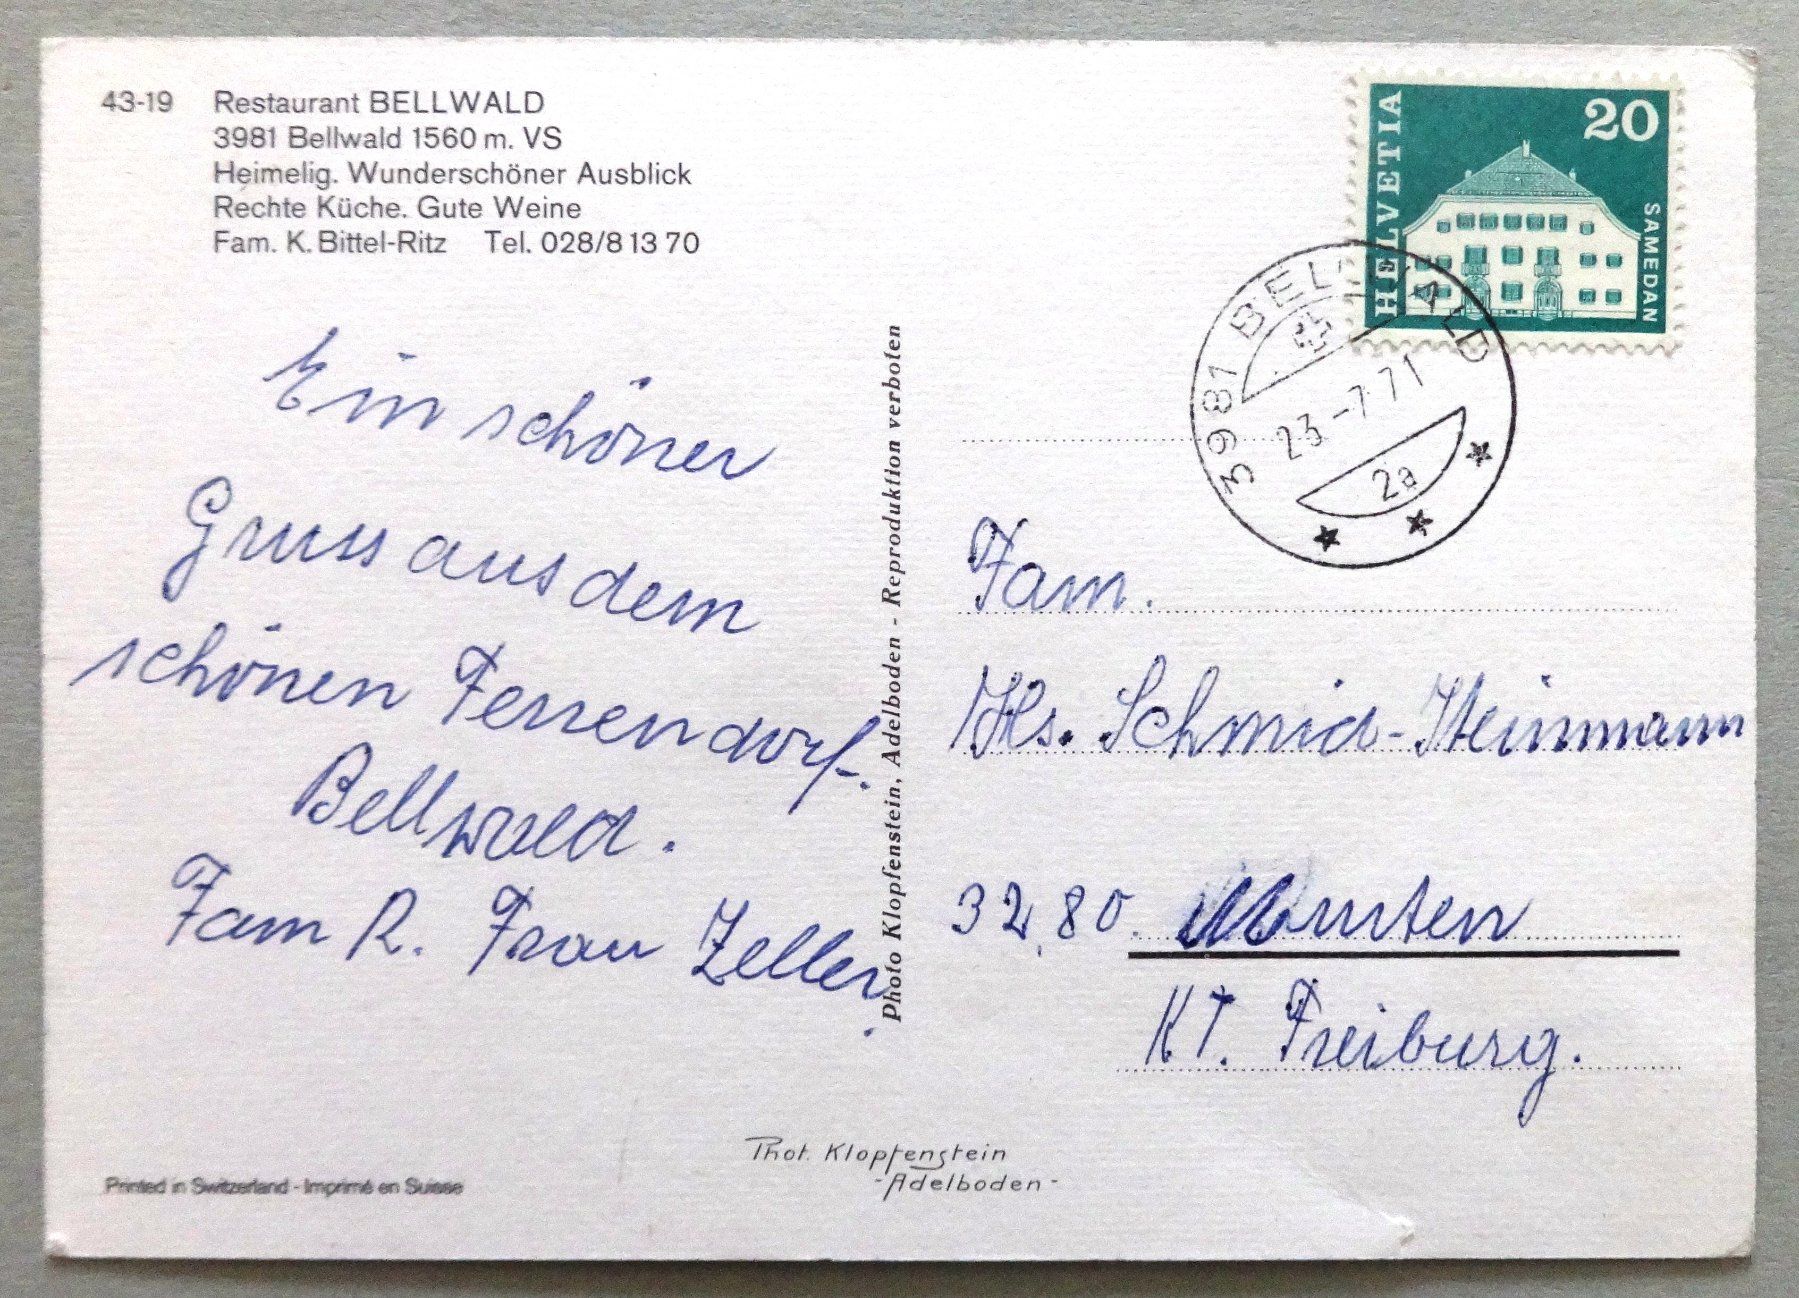 43-19 Restaurant BELLWALD
3981 Bellwald 1560 m. VS
Heimelig. Wunderschöner Ausblick
Rechte Küche. Gute Weine
Fam. K. Bittel-Ritz Tel. 028/8 13 70
Ein schöner
Gruss aus dem
schönen Ferrendorf.
Bellwald.
Fam R. Frau Zeller.
Printed in Switzerland - Imprimé en Suisse
Photo Klopfenstein, Adelboden - Reproduktion verboten
Phot. Klopfenstein
- Adelboden -
HELVETIA
20
SAMEDAN
3981 BELLWALD
23.-7.71
2a
Fam.
Hs. Schmid-Steinmann
3280. Murten
KT. Freiburg.